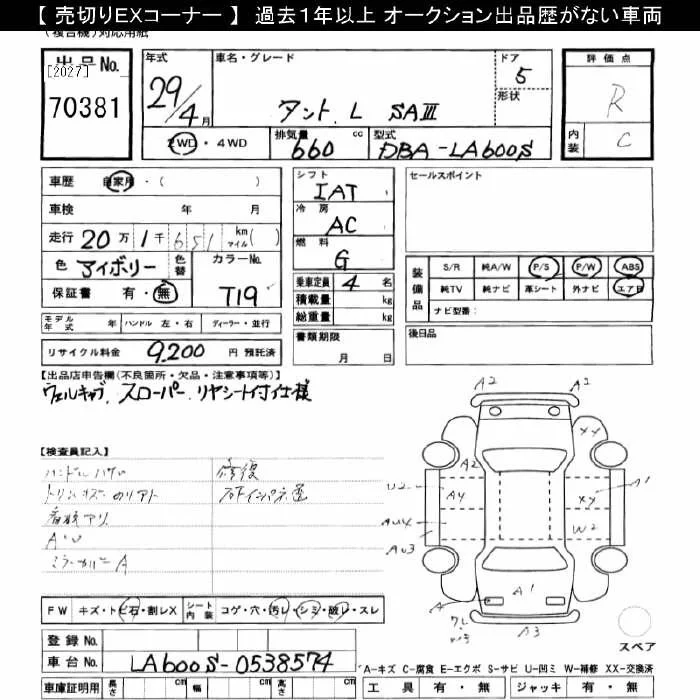 【 売切りEXコーナー 】 過去1年以上 オークション出品歴がない車両
(複合機)対応用紙
出品No.
[2027]
70381
年式
29/4月
車名・グレード
タント L SAⅢ
ドア
5
形状
評価点
R
内装
C
2WD・4WD
排気量
660 cc
型式
DBA-LA600S
車歴 自家用・( )
車検 年 月
走行 20万1千651 km マイル( )
色 アイボリー 色替 カラーNo. T19
保証書 有・無
モデル年式 年 ハンドル 左・右 ディーラー・並行
リサイクル料金 9,200 円 預託済
シフト
IAT
冷房
AC
燃料
G
乗車定員 4 名
積載量 kg
総重量 kg
書類期限
月 日
セールスポイント
装備品
S/R 純A/W P/S P/W ABS
純TV 純ナビ 革シート 外ナビ エアB
ナビ型番:
後日品
【出品店申告欄(不良箇所・欠品・注意事項等)】
ウェルキャブ、スローパー、リヤシート付仕様
【検査員記入】
修復
A2
A2
A2
XX
U2
A4
XX
A1
AU4
W2
AU3
A1
A
A3
スペア
FW キズ・トビ石・割レX シート内装 コゲ・穴・汚レ・シミ・破レ・スレ
登録No.
車台No. LA600S-0538574
車庫証明用 長さ cm 幅 cm 高さ cm
A-キズ C-腐食 E-エクボ S-サビ U-凹ミ W-補修 XX-交換済
工具 有・無 ジャッキ 有・無